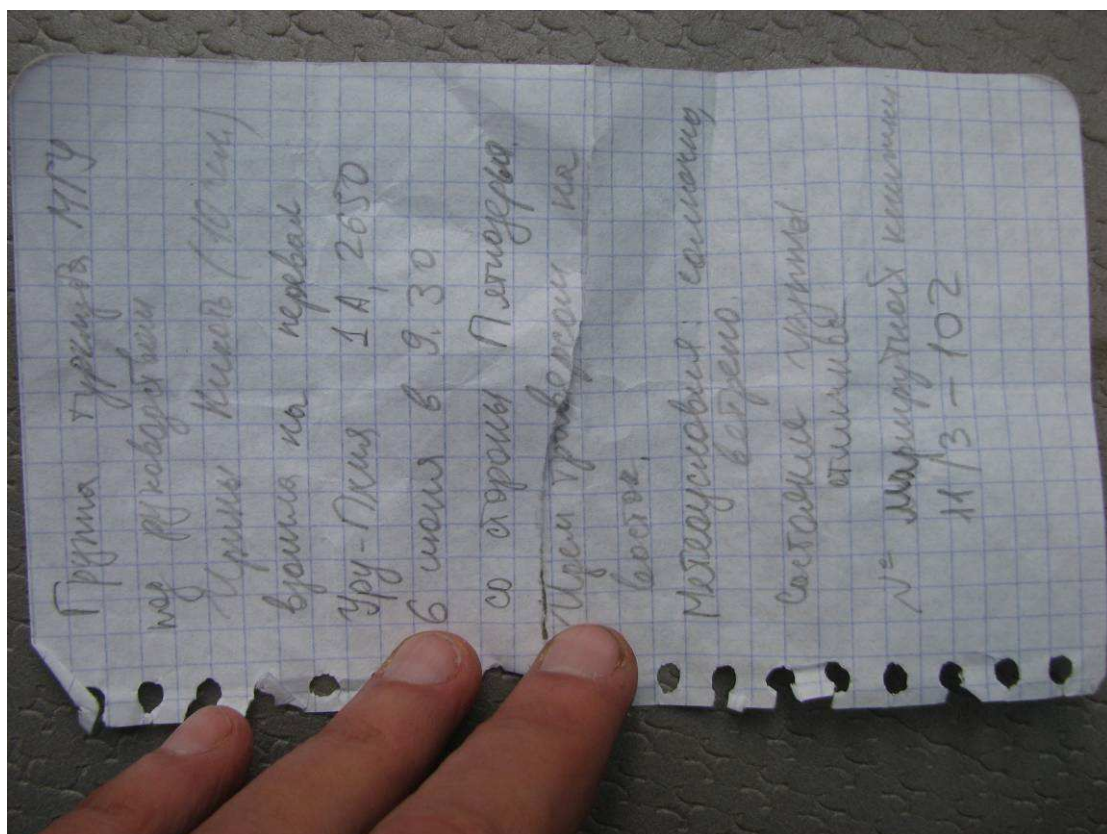 Группа турклуба МГУ
под руководством
Ирины (10 чел.)
взошла на перевал
Уру-Пкия 1А, 2650
6 июля в 9.30
со стороны Пятиозерья.
Идем траверсом на
восток.
Метеоусловия: солнечно,
ветрено.
Состояние группы
отличное
№ маршрутной книжки
11/3-102